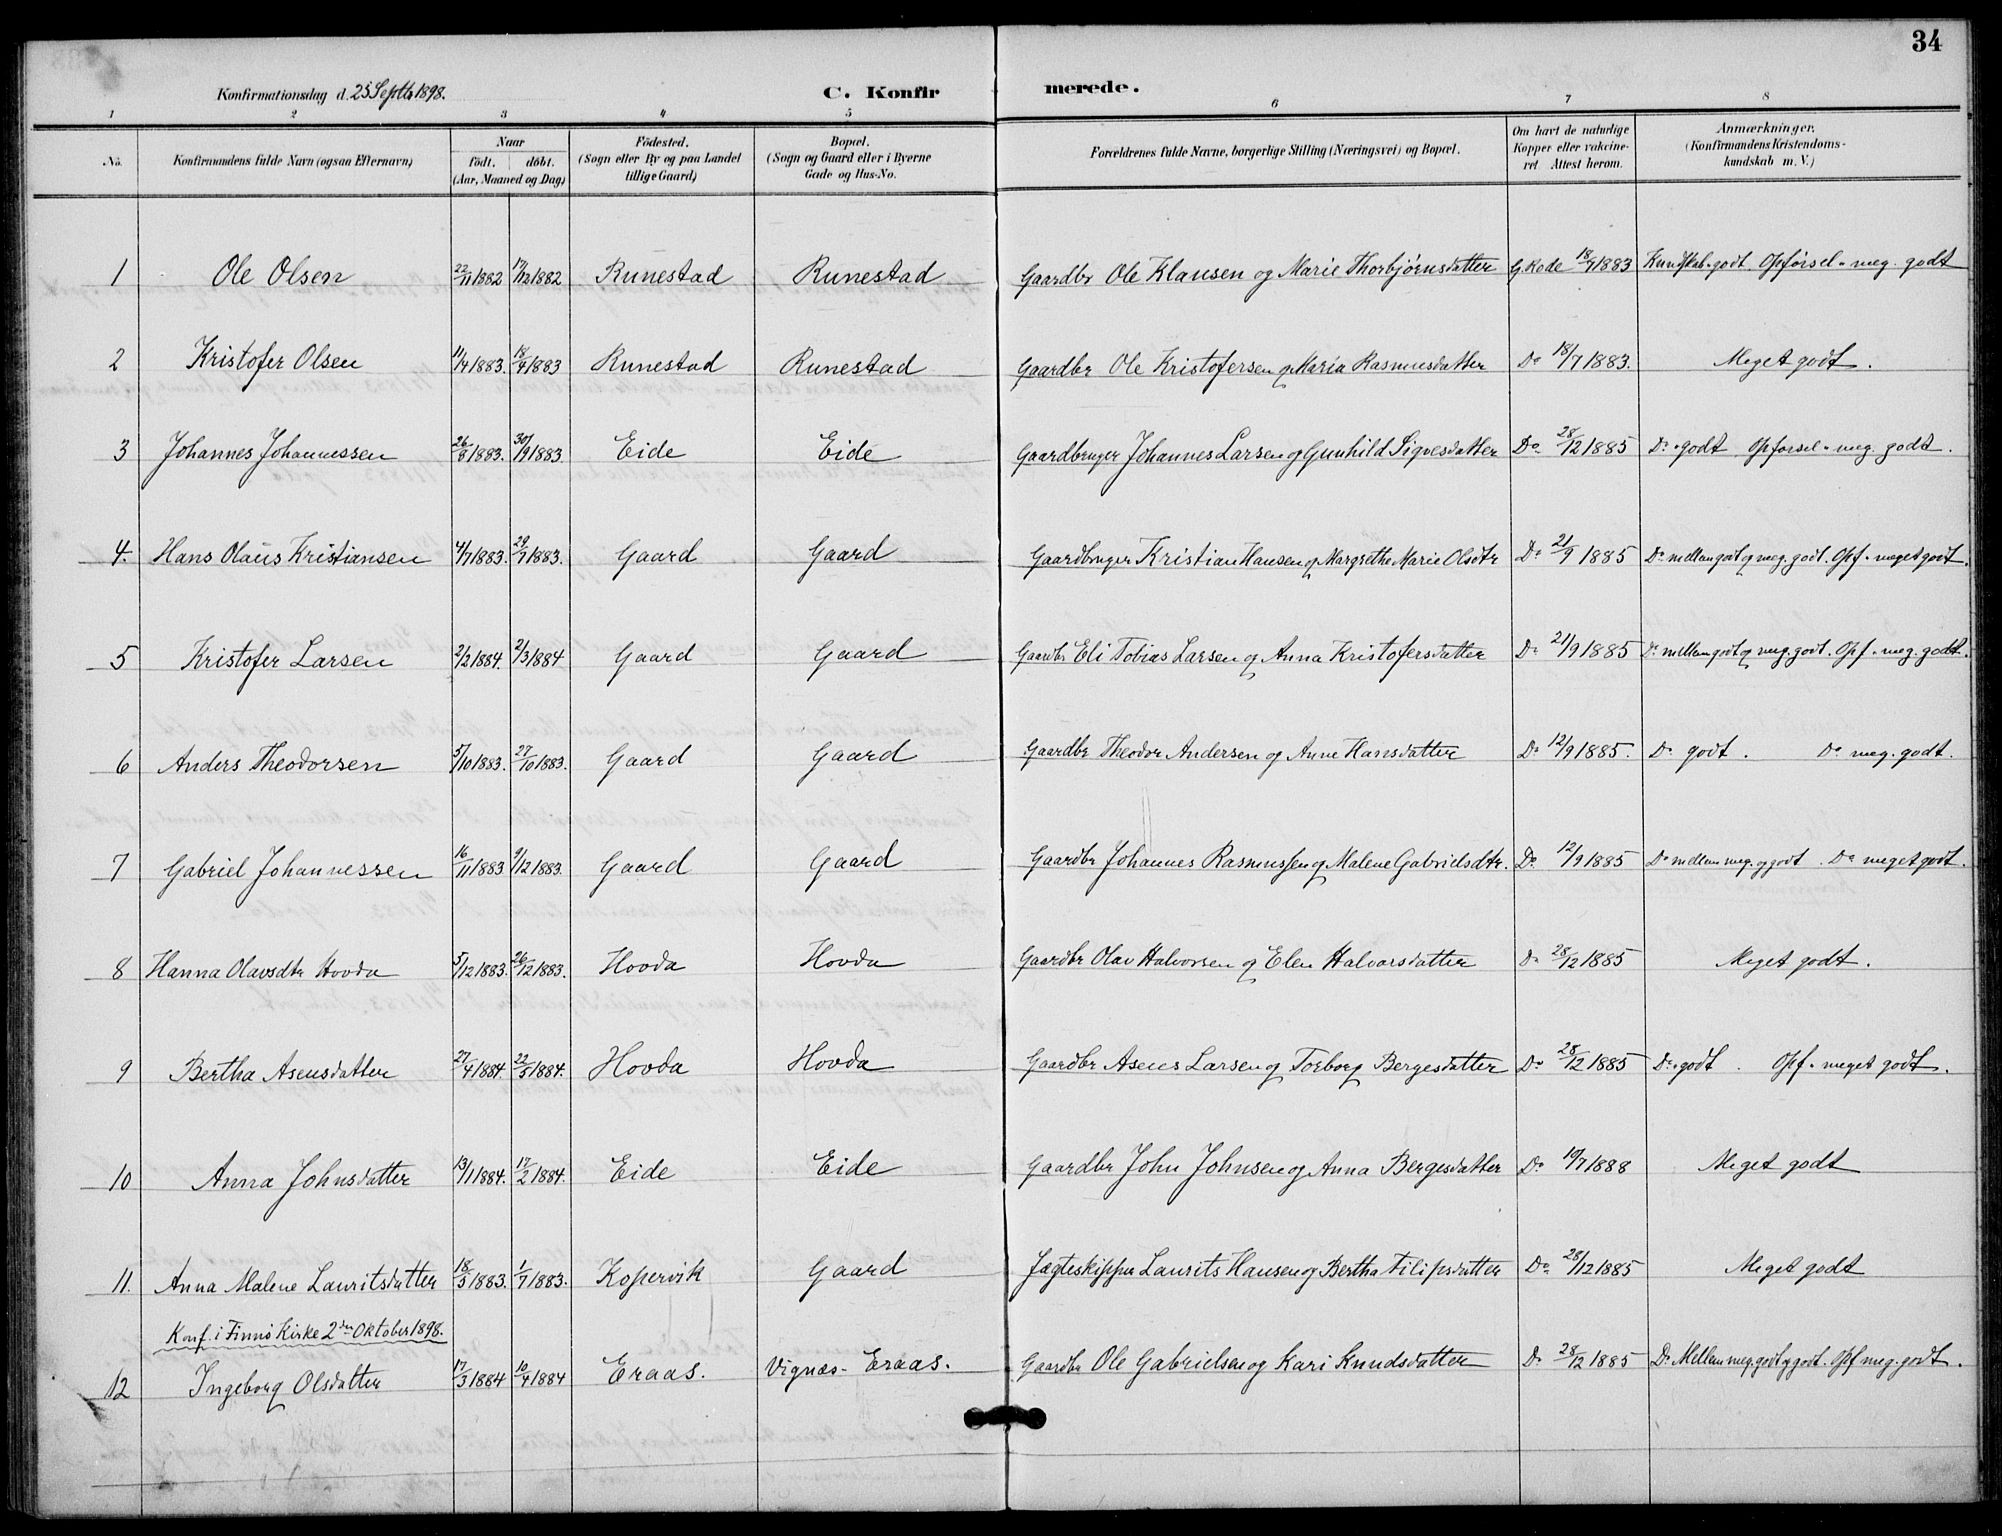 34
Konfirmationsdag d. 25 Septbr 1898.
C. Konfirmerede.
1 2 3 4 5 6 7 8
No. Konfirmandens fulde Navn (ogsaa Efternavn) Naar födt. döbt. (Aar, Maaned og Dag) Födested. (Sogn eller By og paa Landet tillige Gaard) Bopæl. (Sogn og Gaard eller i Byerne Gade og Hus-No. Forældrenes fulde Navne, borgerlige Stilling (Næringsvei) og Bopæl. Om havt de naturlige Kopper eller vakcineret Attest herom. Anmærkninger. (Konfirmandens Kristendomskundskab m. V.)
1 Ole Olsen 22/11 1882 17/12 1882 Runestad Runestad Gaardbr Ole Klausen og Marie Thorbjörnsdatter G. Kode 18/7 1883 Kundskab " godt Opförsel " meg. godt
2 Kristofer Olsen 11/4 1883. 18/4 1883 Runestad Runestad Gaardbr Ole Kristofersen og Maria Rasmusdatter Do 18/7 1883. Meget godt.
3 Johannes Johannessen 26/8 1883. 30/9 1883 Eide Eide Gaardbruger Johannes Larsen og Gunhild Sigvesdatter Do 28/12 1885 Do " godt Opförsel " meg. godt.
4. Hans Olaus Kristiansen 4/7 1883. 29/7 1883. Gaard Gaard Gaardbruger Kristian Hansen og Margrethe Marie Olsdtr Do 21/9 1885 Do mellem godt og meg. godt. Opf " meget godt.
5 Kristofer Larsen 2/2 1884. 2/3 1884 Gaard Gaard Gaardbr Eli Tobias Larsen og Anna Kristofersdatter Do 21/9 1885 Do mellem godt og meg. godt. Opf " meg. godt.
6 Anders Theodorsen 5/10 1883. 27/10 1883. Gaard Gaard Gaardbr Theodor Andersen og Anne Hansdatter Do 12/9 1885. Do godt. Do meg. godt.
7 Gabriel Johannessen 16/11 1883 9/12 1883. Gaard Gaard Gaardbr Johannes Rasmussen og Malene Gabrielsdtr. Do 12/9 1885 Do mellem meg. og godt. Do meget godt.
8 Hanna Olavsdtr Hovda 5/12 1883. 26/12 1883. Hovda Hovda Gaardbr Olav Halvorsen og Elen Halvorsdatter Do 28/12 1885 Meget godt.
9 Bertha Asensdatter 27/4 1884. 22/5 1884. Hovda Hovda Gaardbr Asens Larsen og Torborg Bergesdatter Do 28/12 1885 Do " godt. Opf " meget godt.
10 Anna Johnsdatter 13/1 1884. 17/2 1884. Eide Eide Gaardbr John Johnsen og Anna Bergesdatter Do 19/7 1888 Meget godt
11. Anna Malene Lauritsdatter 18/5 1883. 1/7 1883. Kopervik Gaard Jagteskipper Laurits Hansen og Bertha Filipsdatter Do 28/12 1885 Meget godt
Konf. i Finnö Kirke 2den Oktober 1898.
12 Ingeborg Olsdatter 17/3 1884 10/4 1884 Eraas. Vignæs - Eraas. Gaardbr Ole Gabrielsen og Kari Knudsdatter Do 28/12 1885 Do Mellem meg. godt og godt. Opf meg. godt.